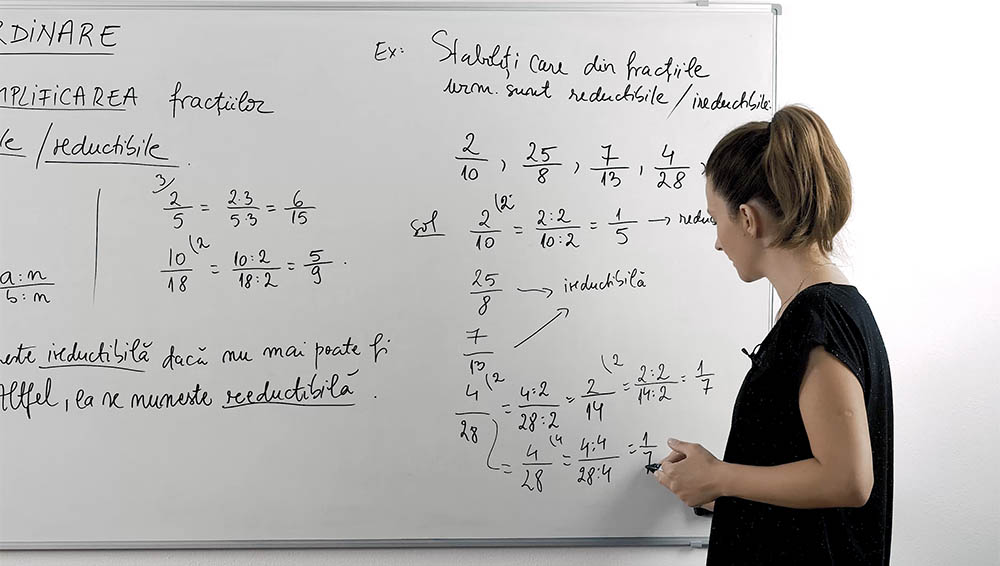 RDINARE
MPLIFICAREA fracțiilor
le / reductibile.
3/ 2/5 = 2·3/5·3 = 6/15
10/18 (2 = 10:2/18:2 = 5/9.
a:n/b:n
este ireductibilă dacă nu mai poate fi
Altfel, ea se numeste reeductibilă.
Ex: Stabiliți care din fracțiile
urm. sunt reductibile / ireductibile:
2/10, 25/8, 7/13, 4/28,
sol 2/10 (2 = 2:2/10:2 = 1/5 → reduc
25/8 → ireductibilă
7/13
4/28 (2 = 4:2/28:2 = 2/14 (2 = 2:2/14:2 = 1/7
= 4/28 (4 = 4:4/28:4 = 1/7